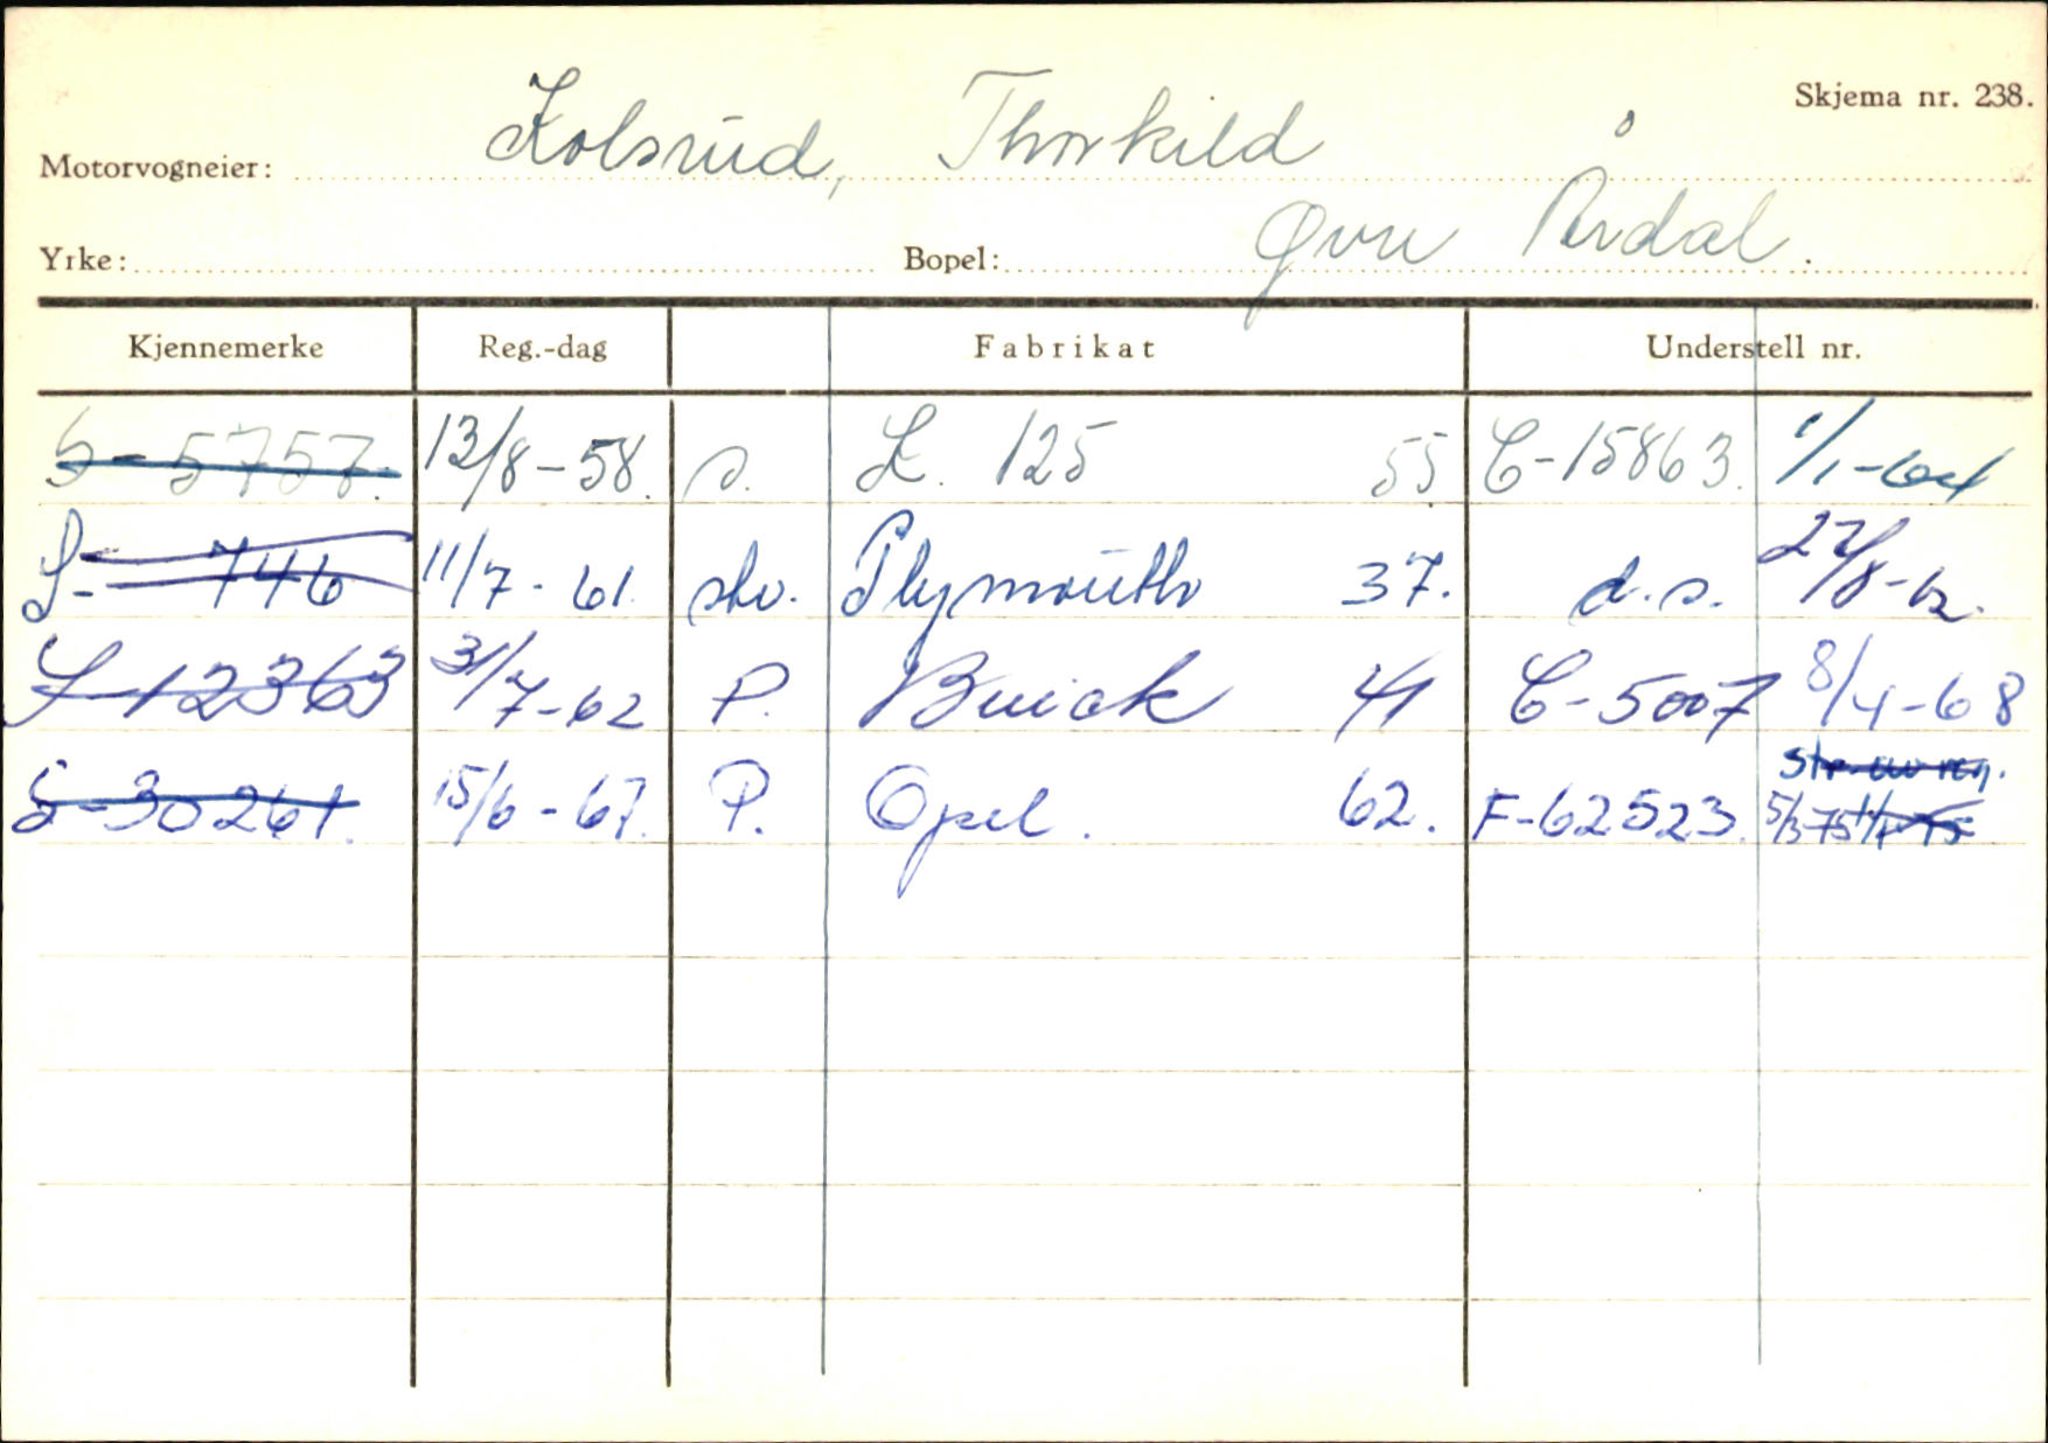 Skjema nr. 238.
Motorvogneier: Kolsrud, Thorkild
Yrke: Bopel: Øvre Årdal.
Kjennemerke Reg.-dag Fabrikat Understell nr.
S-5757. 13/8-58. s. L. 125 55 C-15863. 1/1-64
S-746 11/7-61. stv. Plymouth 37. d.s. 27/8-62.
S-12363 31/7-62 P. Buick 41 C-5007 8/4-68
str. av reg.
S-30261. 15/6-67. P. Opel. 62. F-62523. 5/3-75 1/1-75